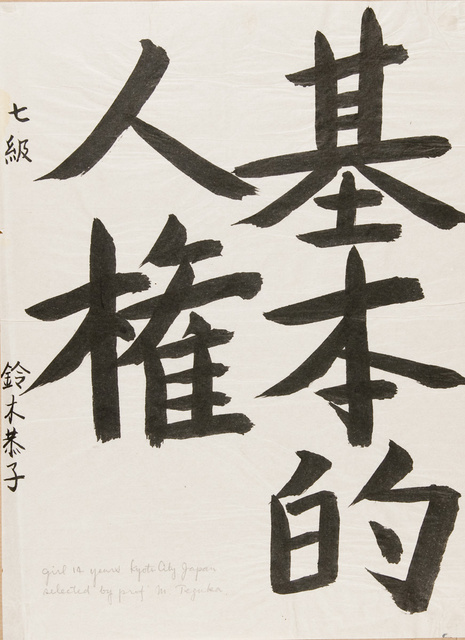 基本的
人権
七級 鈴木恭子
girl 12 years Kyoto City Japan
selected by prof M. Tezuka